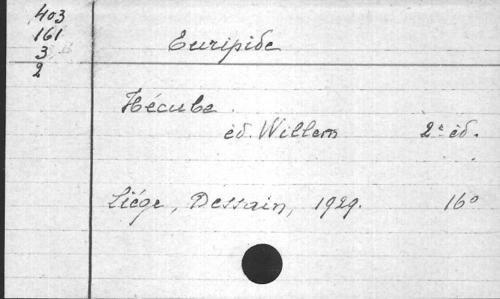 403
161
3
2
Euripide
Hécube.
éd. Willem 2e éd.
Liége, Dessain, 1929. 16o